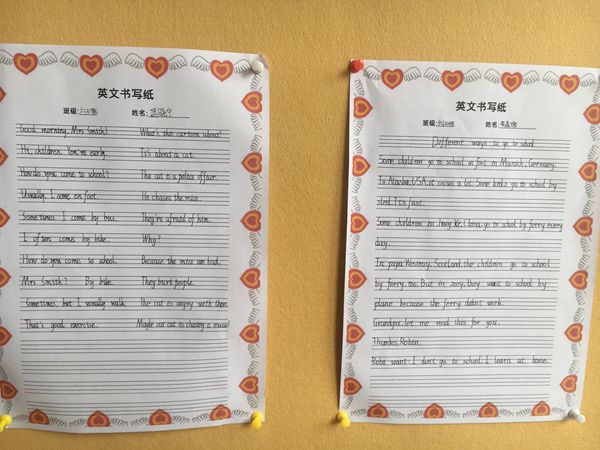 英文书写纸
班级:
姓名:
Good morning, Mrs Smith!
Hi, children. You're early.
How do you come to school?
Usually, I come on foot.
Sometimes I come by bus.
I often come by bike.
How do you come to school.
Mrs Smith? By bike.
Sometimes, but I usually walk.
That's good exercise.
What's this cartoon about?
It's about a cat.
The cat is a police officer.
He chases the mice.
They're afraid of him.
Why?
Because the mice are bad.
They hurt people.
The cat is angry with them.
Maybe our cat is chasing a mouse!
英文书写纸
班级:
姓名:
Different ways to go to school
Some children go to school on foot in Munich, Germany.
In Alaska, USA, it snows a lot. Some kids go to school by
sled. It's fast.
Some children in Jiang Xi, China, go to school by ferry every
day.
In papa Westray, Scotland, the children go to school
by ferry, too. But in 2009, they went to school by
plane because the ferry didn't work.
Grandpa, let me read this for you.
Thanks, Robin.
Robin: I don't go to school. I learn at home.